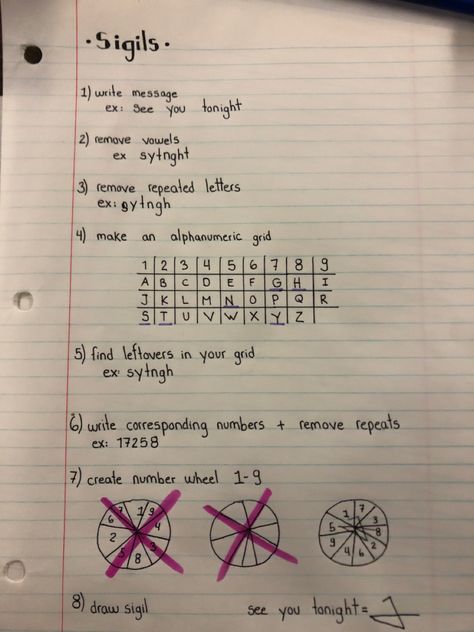 • Sigils •
1) write message
ex: see you tonight
2) remove vowels
ex sytnght
3) remove repeated letters
ex: sytngh
4) make an alphanumeric grid
1 2 3 4 5 6 7 8 9
A B C D E F G H I
J K L M N O P Q R
S T U V W X Y Z
5) find leftovers in your grid
ex: sytngh
6) write corresponding numbers + remove repeats
ex: 17258
7) create number wheel 1-9
7 1 9
6 4
2 3
5 8
1 7
5 3
8
9 2
4 6
8) draw sigil
see you tonight =